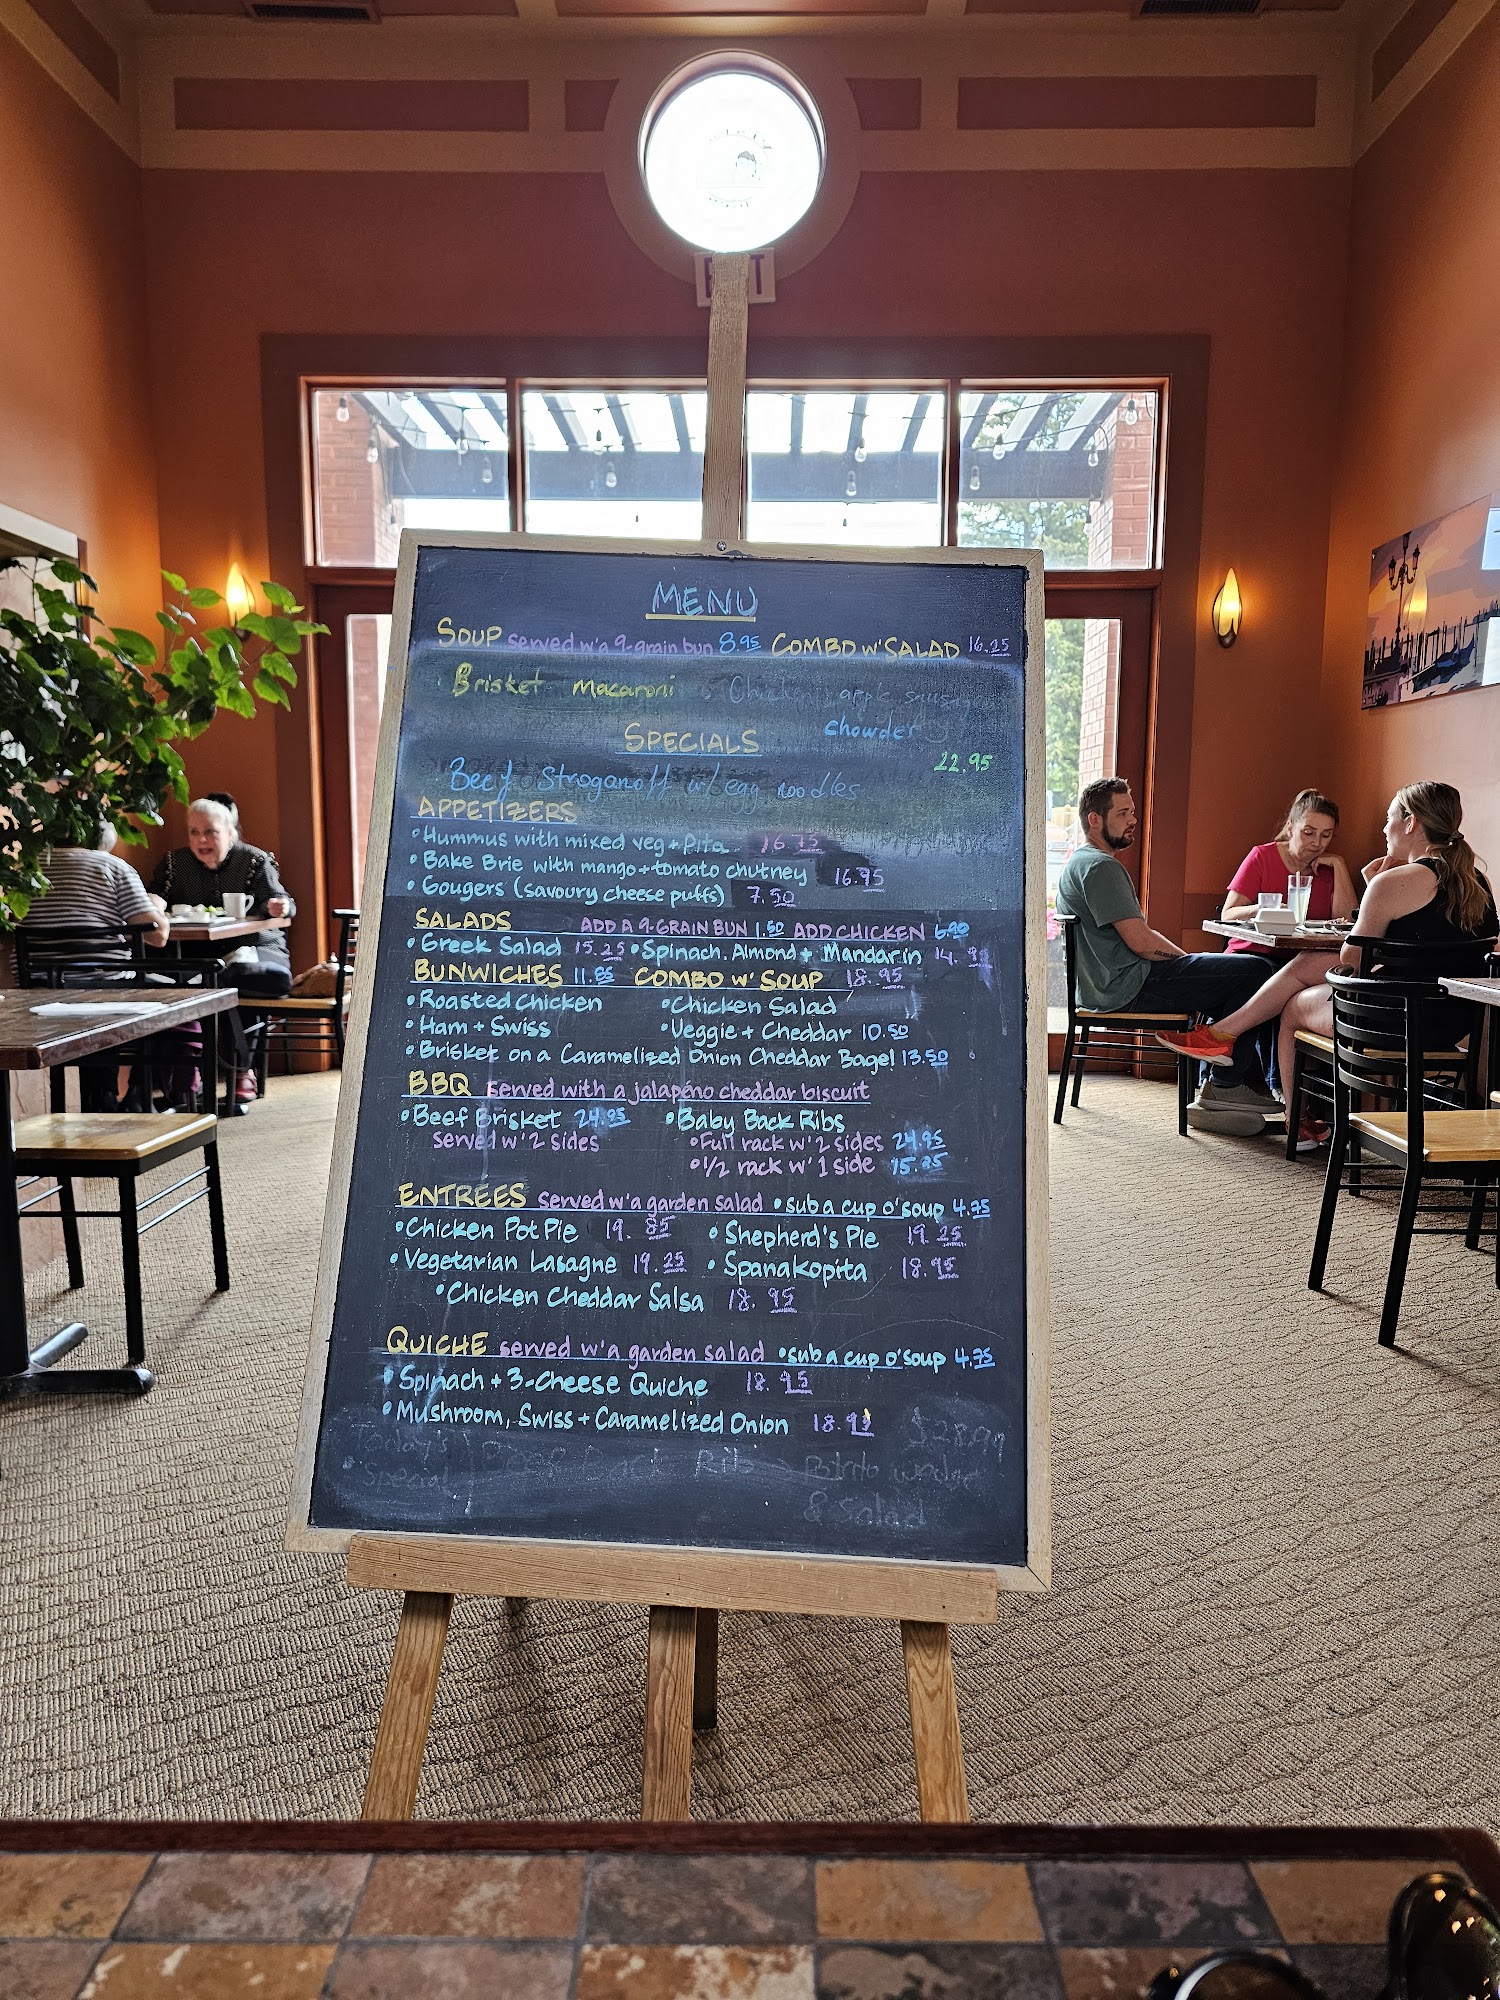 EXIT
MENU
SOUP served w'a 9-grain bun 8.95 COMBO w' SALAD 16.25
Brisket Macaroni Chicken apple
chowder
SPECIALS
22.95
Beef Stroganoff w/ egg noodles
APPETIZERS
•Hummus with mixed veg + pita 16.75
•Bake Brie with mango + tomato chutney 16.95
•Gougers (savoury cheese puffs) 7.50
SALADS ADD A 9-GRAIN BUN 1.50 ADD CHICKEN 6.90
•Greek Salad 15.25 •Spinach, Almond + Mandarin 14.
BUNWICHES 11.85 COMBO w' SOUP 18.95
•Roasted Chicken •Chicken Salad
•Ham + Swiss •Veggie + Cheddar 10.50
•Brisket on a Caramelized Onion Cheddar Bagel 13.50
BBQ served with a jalapéno cheddar biscuit
•Beef Brisket 24.95 •Baby Back Ribs
served w' 2 sides •Full rack w' 2 sides 24.95
•1/2 rack w' 1 side 15.25
ENTREES served w'a garden salad •sub a cup o' soup 4.75
•Chicken Pot Pie 19.85 •Shepherd's Pie 19.25
•Vegetarian Lasagne 19.25 •Spanakopita 18.95
•Chicken Cheddar Salsa 18.95
QUICHE served w'a garden salad •sub a cup o' soup 4.75
•Spinach + 3-Cheese Quiche 18.95
•Mushroom, Swiss + Caramelized Onion 18.95
Today's Back Rib Potato $28.99
Special & Salad